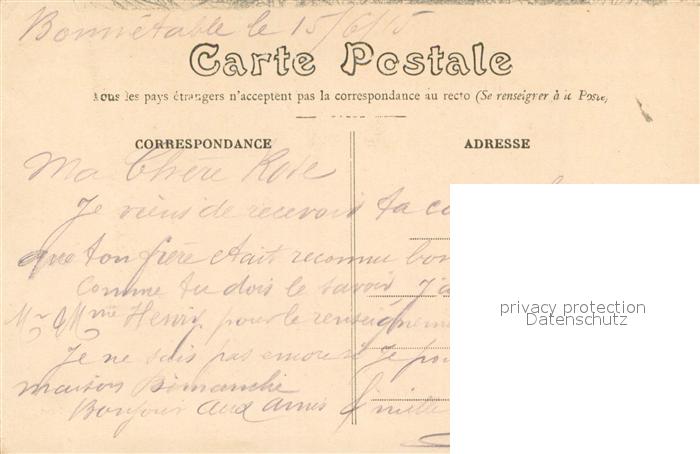 Bonnétable le 15/6/15
Carte Postale
Tous les pays étrangers n'acceptent pas la correspondance au recto (Se renseigner à la Poste)
CORRESPONDANCE
ADRESSE
Ma Chère Rose
Je viens de recevoir ta
que ton frère était reconnu bon
Comme tu dois le savoir
Mr & Mme Henry pour le
Je ne sais pas encore si je
maison Dimanche
Bonjour aux amis & mille
privacy protection
Datenschutz